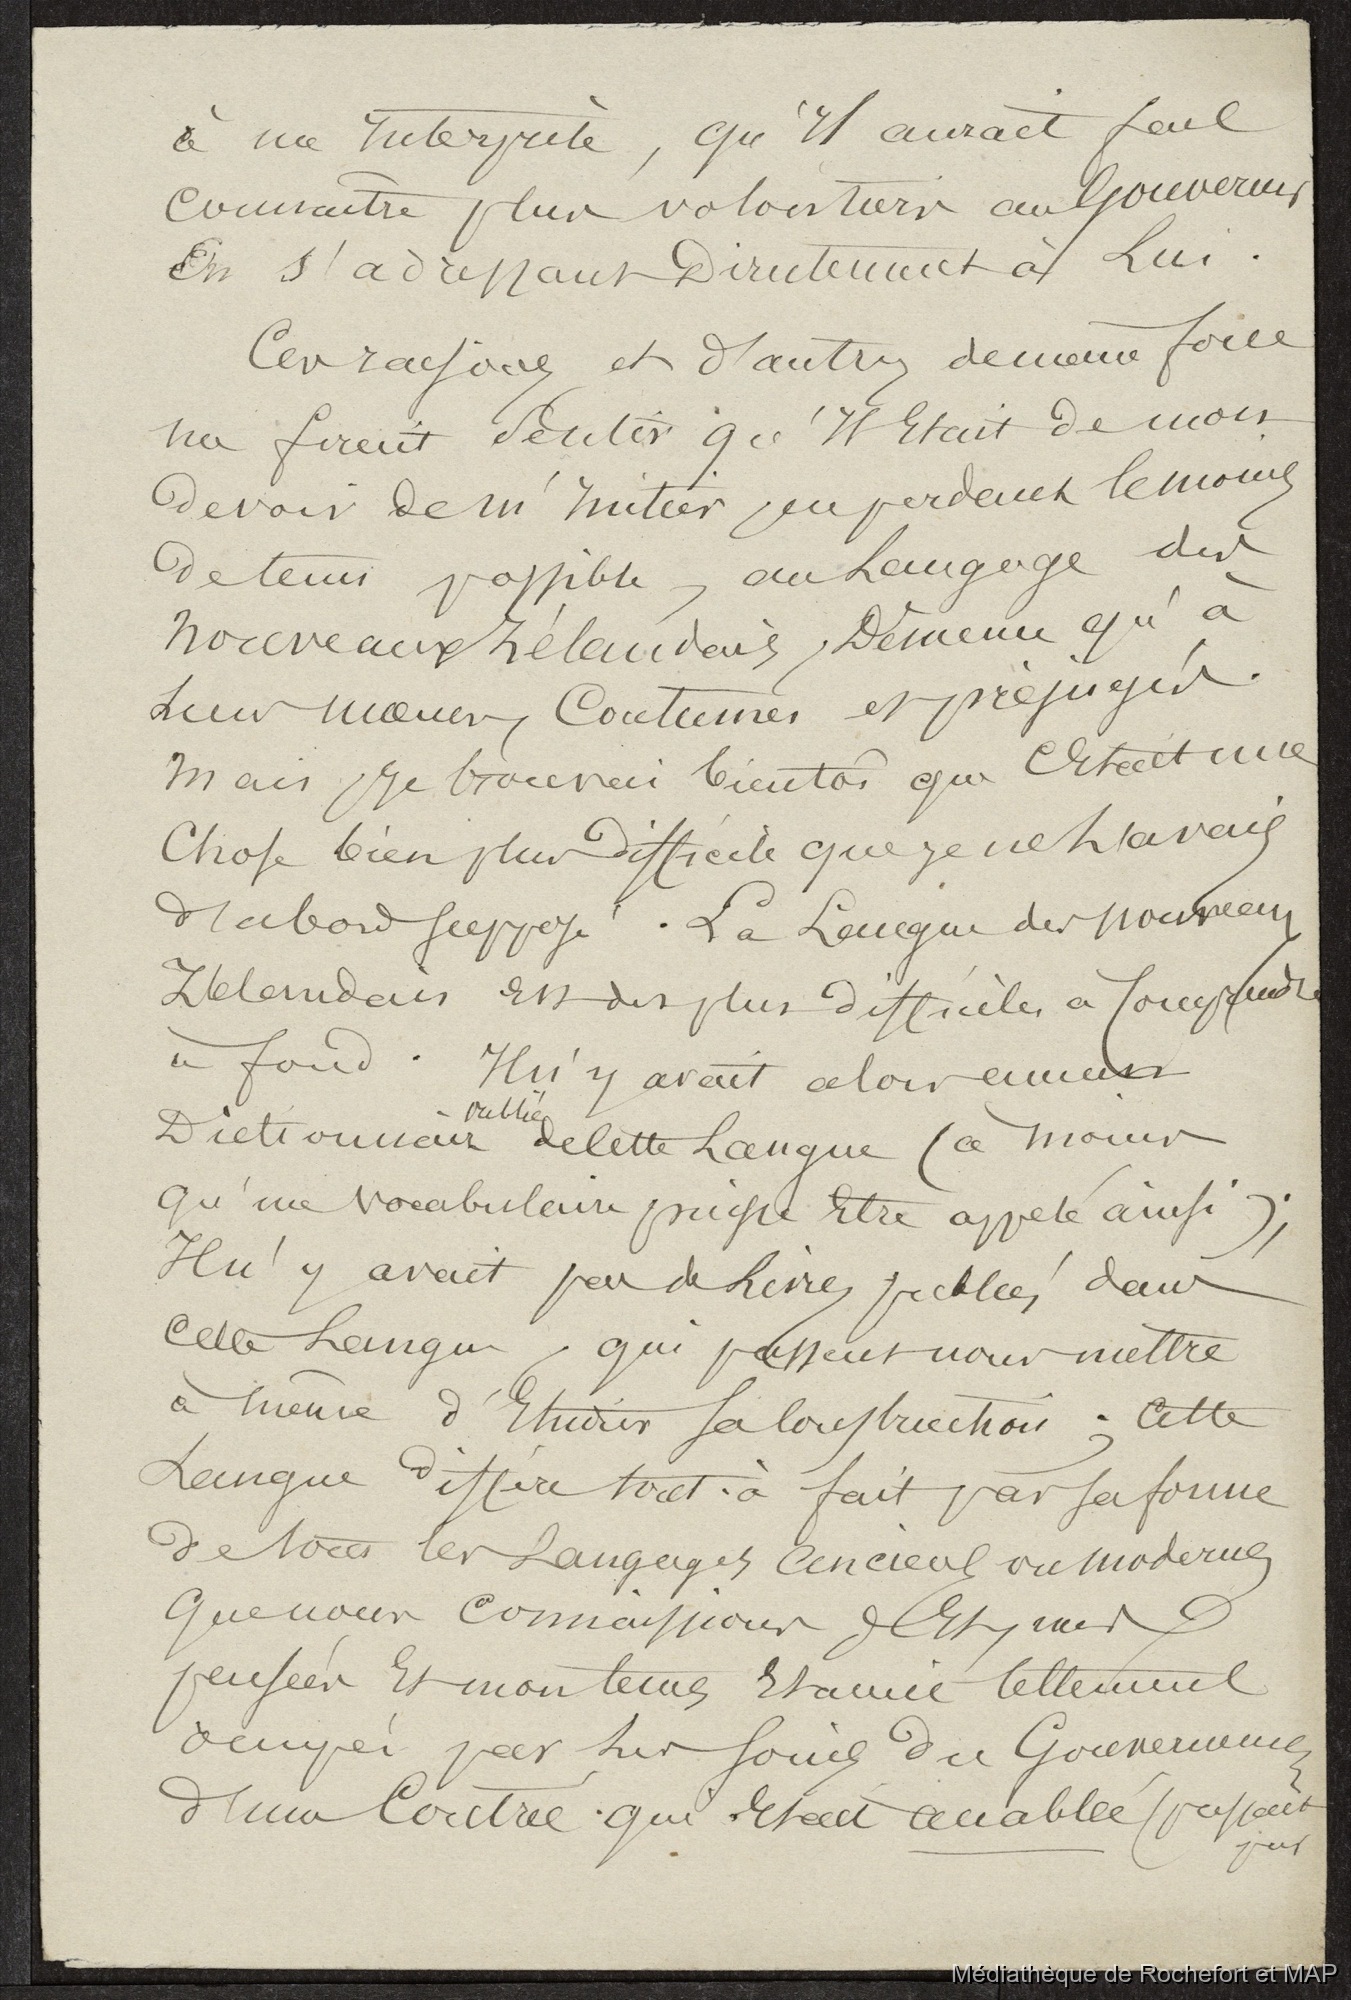 à une Interprète, qu'Il aurait fait
connaître plus volontiers au Gouverneur
En s'adressant Directement à Lui.
Ces raisons et d'autres de même force
me firent sentir qu'Il Etait de mon
Devoir de m'Initier, en perdant le moins
de tems possible, au Langage des
Nouveaux Zélandais, De même qu'à
Leurs mœurs, Coutumes et préjugés.
Mais, Je trouvai bientôt que C'Etait une
Chose bien plus Difficile que je ne L'avais
d'abord supposé. La Langue des nouveaux
Zélandais Est des plus difficiles à Comprendre
à fond. Il n'y avait alors aucun
publié
Dictionnaire de Cette Langue (à moins
qu'un Vocabulaire puisse Etre appelé ainsi);
Il n'y avait pas de Livres publiés dans
Cette Langue, qui pussent nous mettre
à même d'Etudier sa Construction; Cette
Langue diffère tout à fait par sa forme
de tous les Langages anciens ou modernes
que nous Connaissions &
pensées Et mon tems Etaient tellement
occupés par Les soins du Gouvernement
d'une Contrée qui Etait accablée (
pas
Médiathèque de Rochefort et MAP